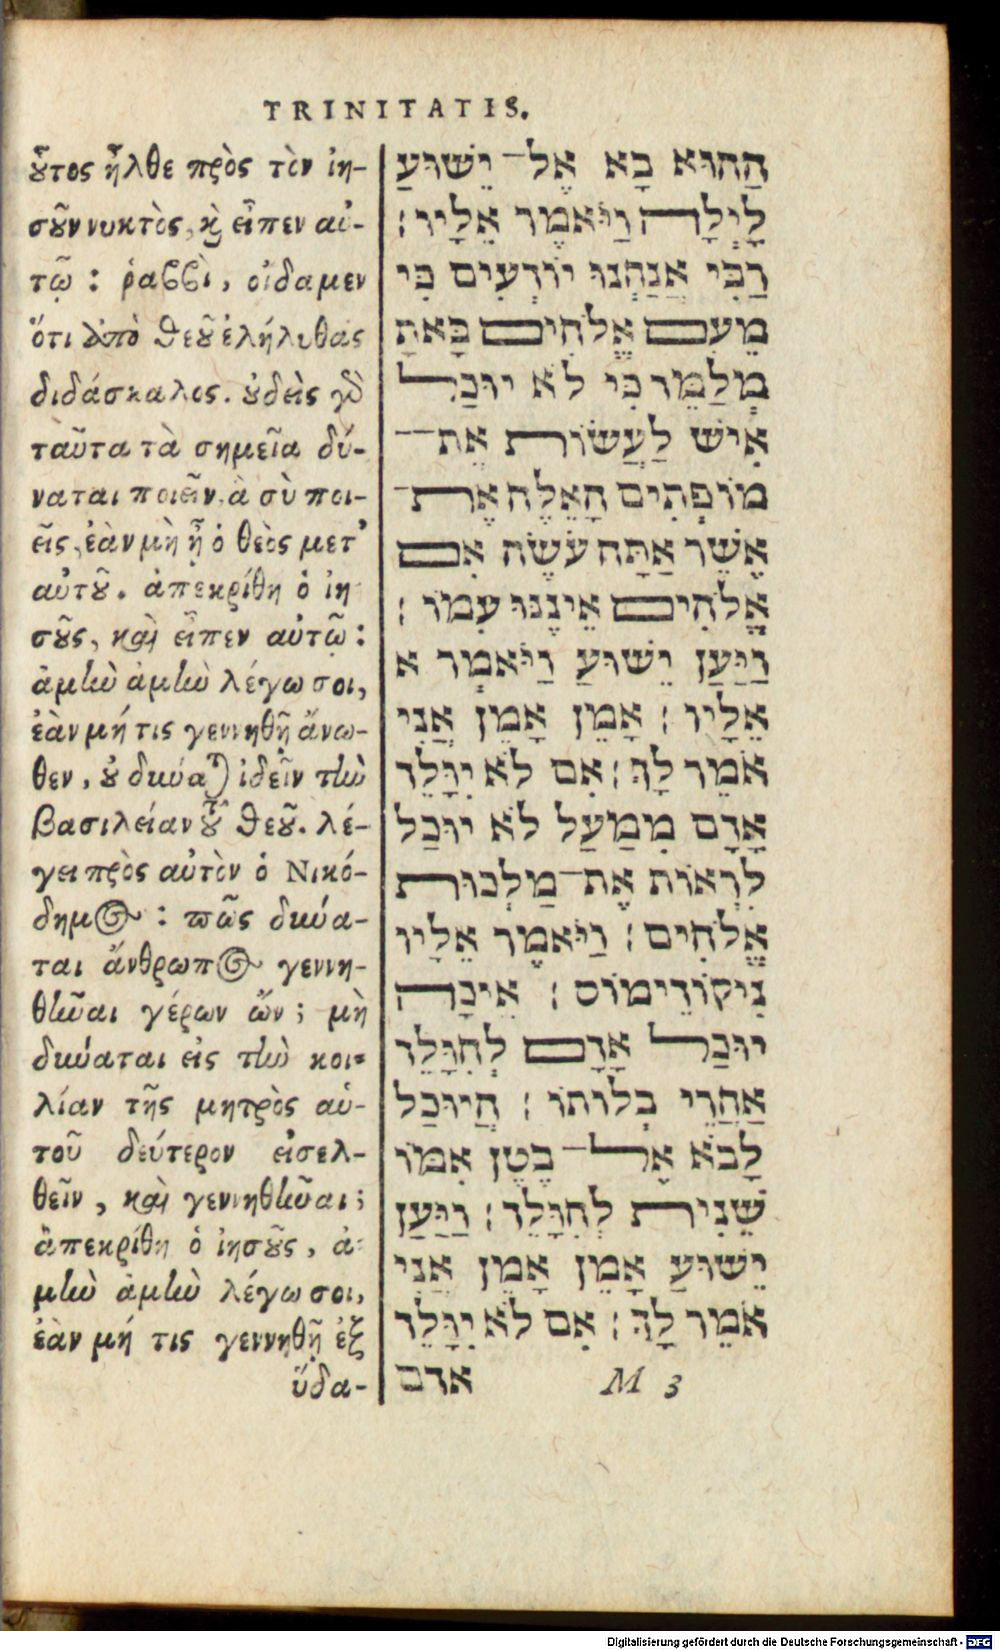 TRINITATIS.
οὗτος ἦλθε πρὸς τὸν ἰη-
σοῦν νυκτὸς, καὶ εἶπεν αὐ-
τῷ : ῥαββὶ, οἴδαμεν
ὅτι ἀπὸ θεοῦ ἐλήλυθας
διδάσκαλος. οὐδεὶς γὰρ
ταῦτα τὰ σημεῖα δύ-
ναται ποιεῖν, ἃ σὺ ποι-
εῖς, ἐὰν μὴ ᾖ ὁ θεὸς μετ'
αὐτοῦ. ἀπεκρίθη ὁ ἰη
σοῦς, καὶ εἶπεν αὐτῷ :
ἀμὴν ἀμὴν λέγω σοι,
ἐὰν μή τις γεννηθῇ ἄνω-
θεν, οὐ δύναται ἰδεῖν τὴν
βασιλείαν τοῦ θεοῦ. λέ-
γει πρὸς αὐτὸν ὁ Νικό-
δημος : πῶς δύνα-
ται ἄνθρωπος γεννη-
θῆναι γέρων ὤν ; μὴ
δύναται εἰς τὴν κοι-
λίαν τῆς μητρὸς αὑ-
τοῦ δεύτερον εἰσελ-
θεῖν, καὶ γεννηθῆναι ;
ἀπεκρίθη ὁ ἰησοῦς, ἀ-
μὴν ἀμὴν λέγω σοι,
ἐὰν μή τις γεννηθῇ ἐξ
ὕδα-
הַהוּא בָא אֶל־ יֵשׁוּעַ
לָיְלָה וַיֹּאמֶר אֵלָיו׃
רַבִּי אֲנַחְנוּ יוֹדְעִים כִּי
מֵעִם אֱלֹהִים בָּאתָ
מְלַמֵּד כִּי לֹא יוּכַל
אִישׁ לַעֲשׂוֹת אֶת־
מוֹפְתִים הָאֵלֶּה אֶת־
אֲשֶׁר אַתָּה עֹשֶׂה אִם
אֱלֹהִים אֵינֶנּוּ עִמּוֹ׃
וַיַּעַן יֵשׁוּעַ וַיֹּאמֶר א
אֵלָיו׃ אָמֵן אָמֵן אֲנִי
אֹמֵר לָךְ׃ אִם לֹא יִוָּלֵד
אָדָם מִמַּעַל לֹא יוּכַל
לִרְאוֹת אֶת־ מַלְכוּת
אֱלֹהִים׃ וַיֹּאמֶר אֵלָיו
נִיקוֹדֵימוֹס׃ אֵיכָה
יוּכַל אָדָם לְהִוָּלֵד
אַחֲרֵי בְלוֹתוֹ׃ הֲיוּכַל
לָבֹא אֶל־ בֶּטֶן אִמּוֹ
שֵׁנִית לְהִוָּלֵד׃ וַיַּעַן
יֵשׁוּעַ אָמֵן אָמֵן אֲנִי
אֹמֵר לָךְ׃ אִם לֹא יִוָּלֵד
אדם
M 3
Digitalisierung gefördert durch die Deutsche Forschungsgemeinschaft - DFG